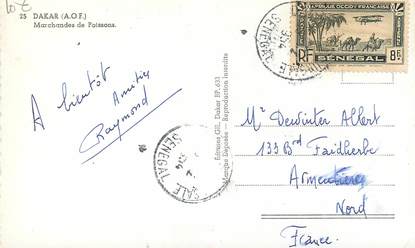 10€
25 DAKAR (A.O.F.)
Marchandes de Poissons.
A bientôt
Amitiés
Raymond
Editions GIL Dakar BP. 631
Marque Déposée - Reproduction interdite
AFRIQUE OCCIDle FRANÇAISE
RF SÉNÉGAL 8F
SENEGAL
SENEGAL
Mr Dewinter Albert
133 Bd Faidherbe
Armentières
Nord
France.